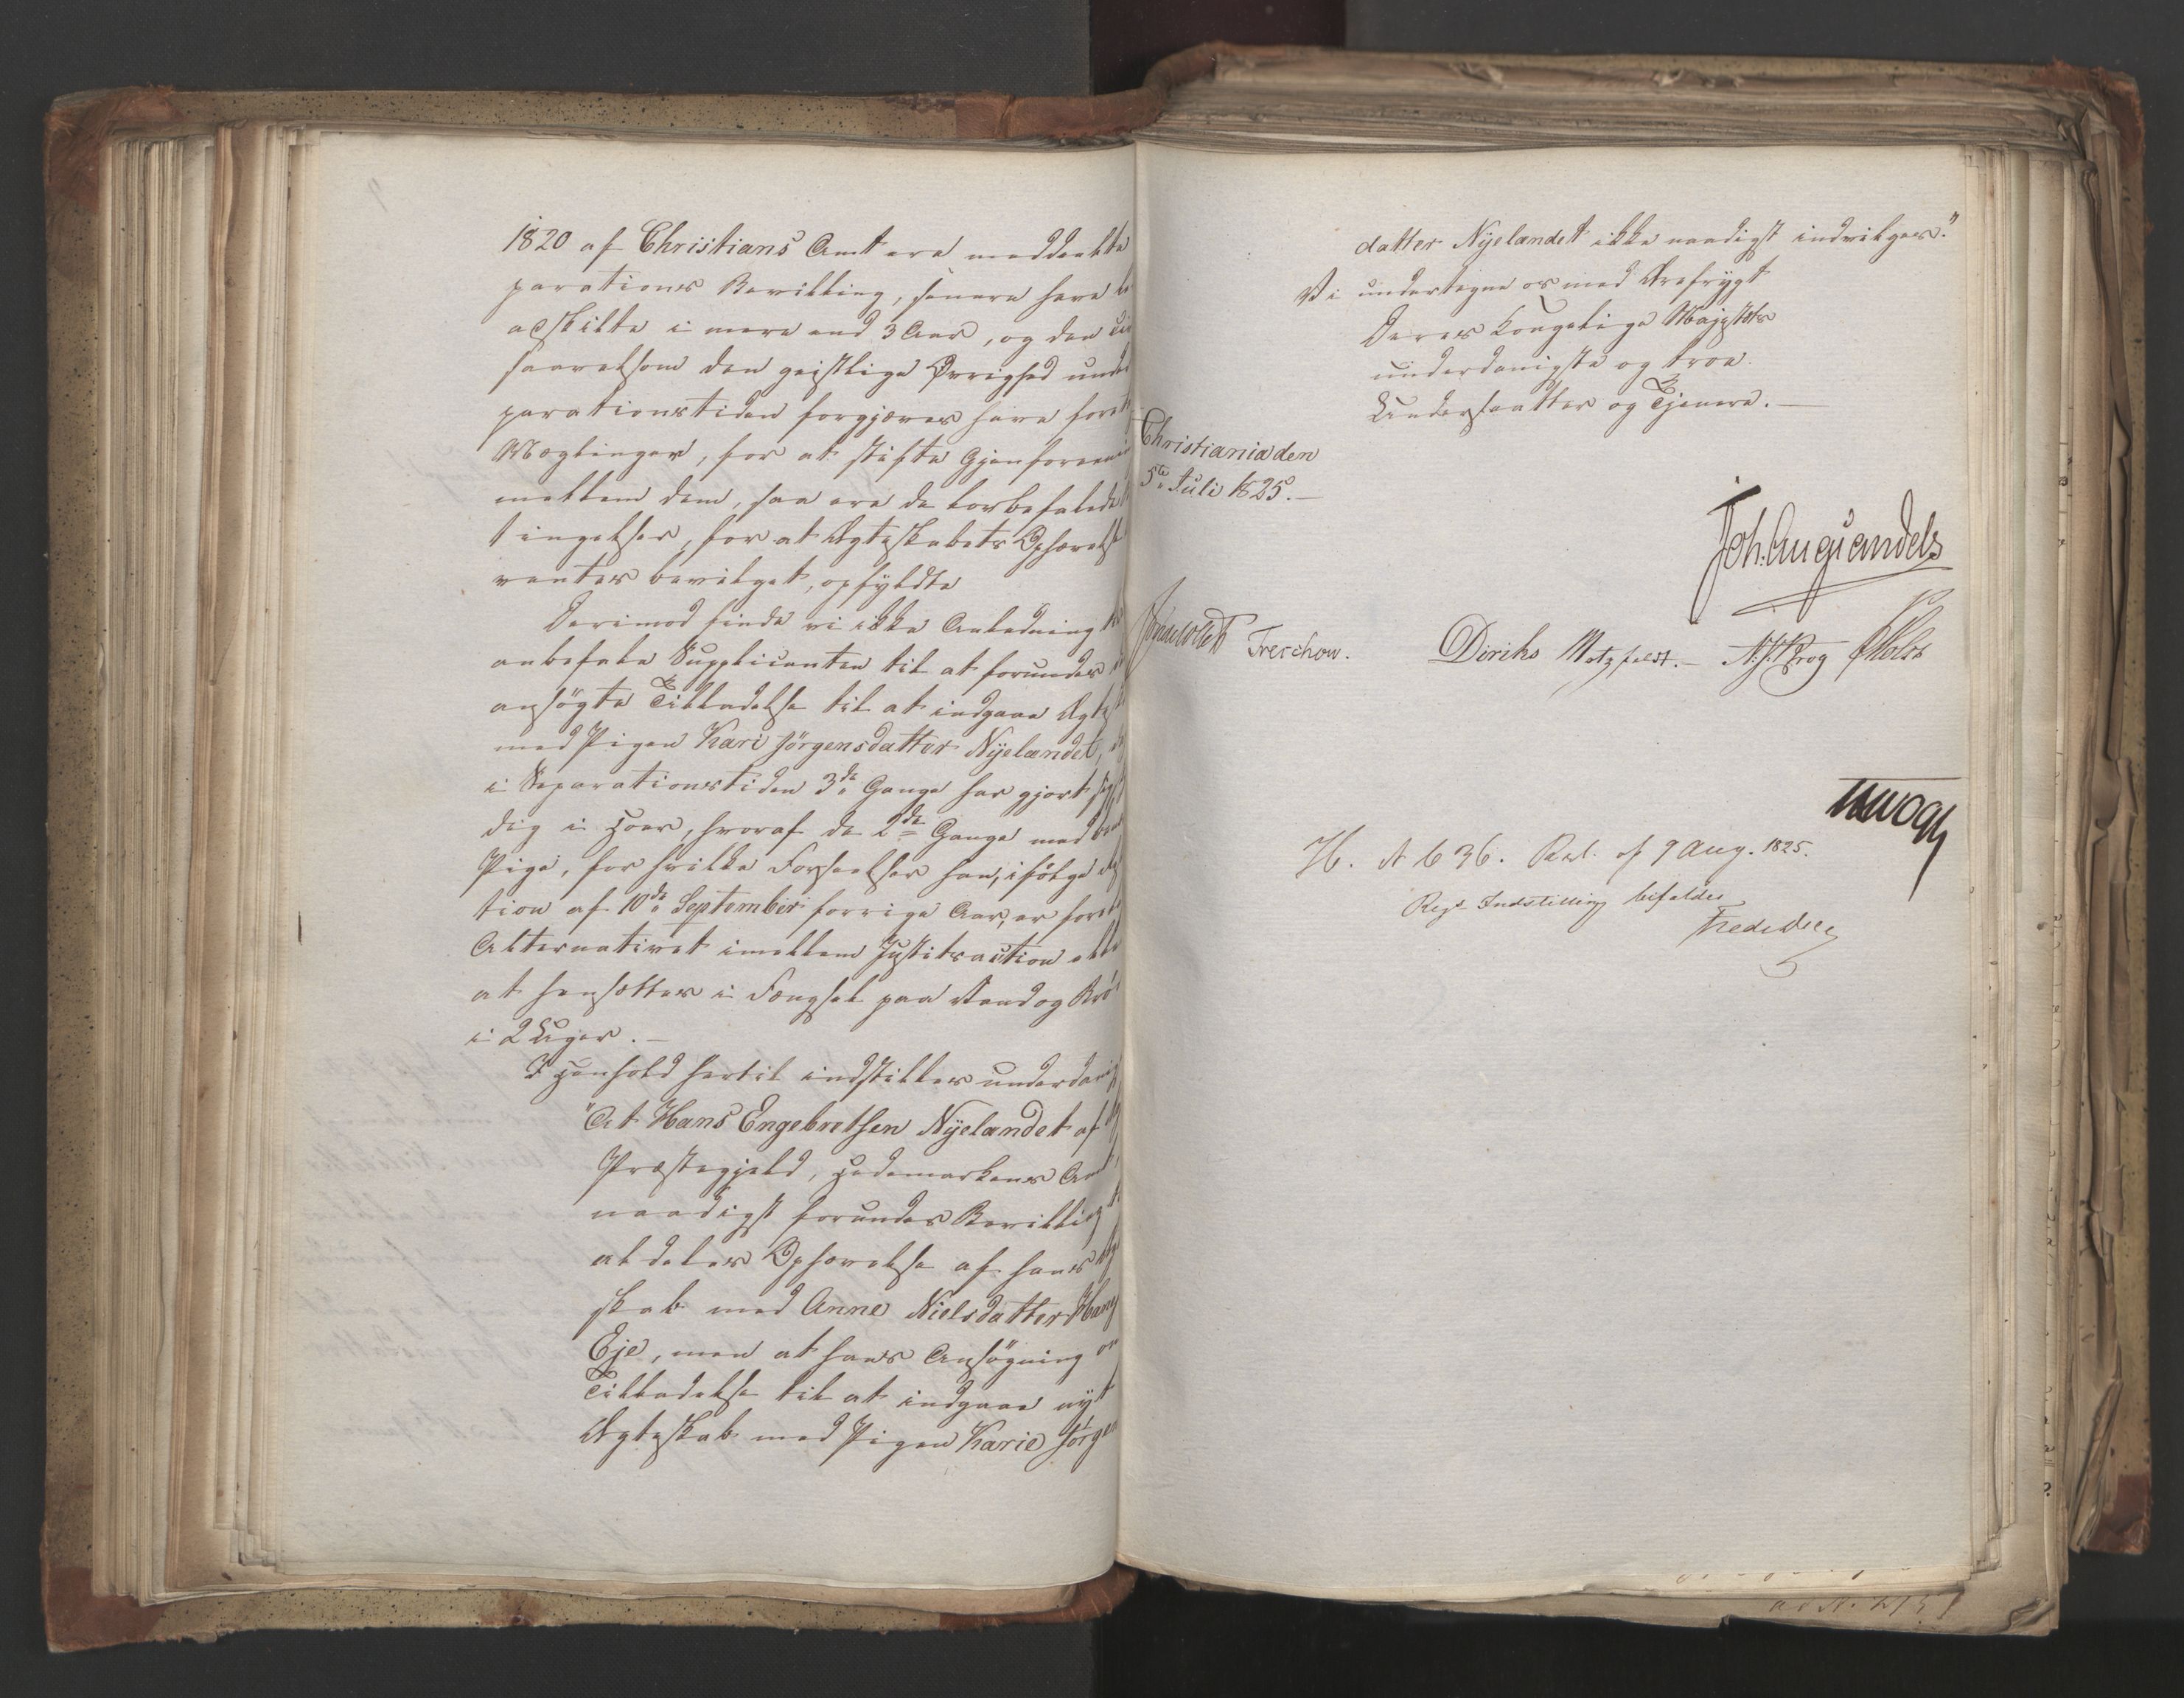 1820 af Christians Amt ere meddeelte
parations Bevilling, senere have
adskilte i mere end 3 Aar, og den
saavelsom den geistlige Øvrighed unde
parationstiden forgjæves have foret
Mæglinger, for at stifte Gjenforeni
mellem dem, saa ere de lovbefalede
tingelser, for at Ægteskabets Ophævelse
ventes bevilget, opfyldte
Derimod finde vi ikke Anledning til
anbefale Supplicanten til at forundes
ansøgte Tilladelse til at indgaae Ægtesk
med Pigen Kari Jörgensdatter Nyelandet,
i Separationstiden 3de Gange har gjort sig
dig i Hoer, hvoraf de 2de Gange med
Pige, for hvilke Forseelser han, ifölge
tion af 10de September forrige Aar, er fore
Alternativet imellem Justitsaction elle
at hensættes i Fængsel paa Vand og Brö
i 2 Uger.
I Henhold hertil indstilles underdanig
"At Hans Engebretsen Nyelandet af
Præstegjeld, Hedemarkens Amt,
naadigst forundes Bevilling
at deles Ophævelse af hans Ægt
skab med Anne Nielsdatter
Eje, men at hans Ansøgning om
Tilladelse til at indgaae nyt
Ægteskab med Pigen Karie Jörgen
datter Nyelandet ikke naadigst indvilges."
Vi undertegne os med Ærefrygt
Deres Kongelige Majestæts
underdanigste og troe
Undersaatter og Tjenere.
Christiania den
5te Juli 1825.
Joh. Aug. Sandels
Sommerhielm Treschow. Diriks Motzfeldt. N. J. Krog P. Holst
H. N 636. Res. af 9 Aug. 1825.
Regs Indstilling bifaldes